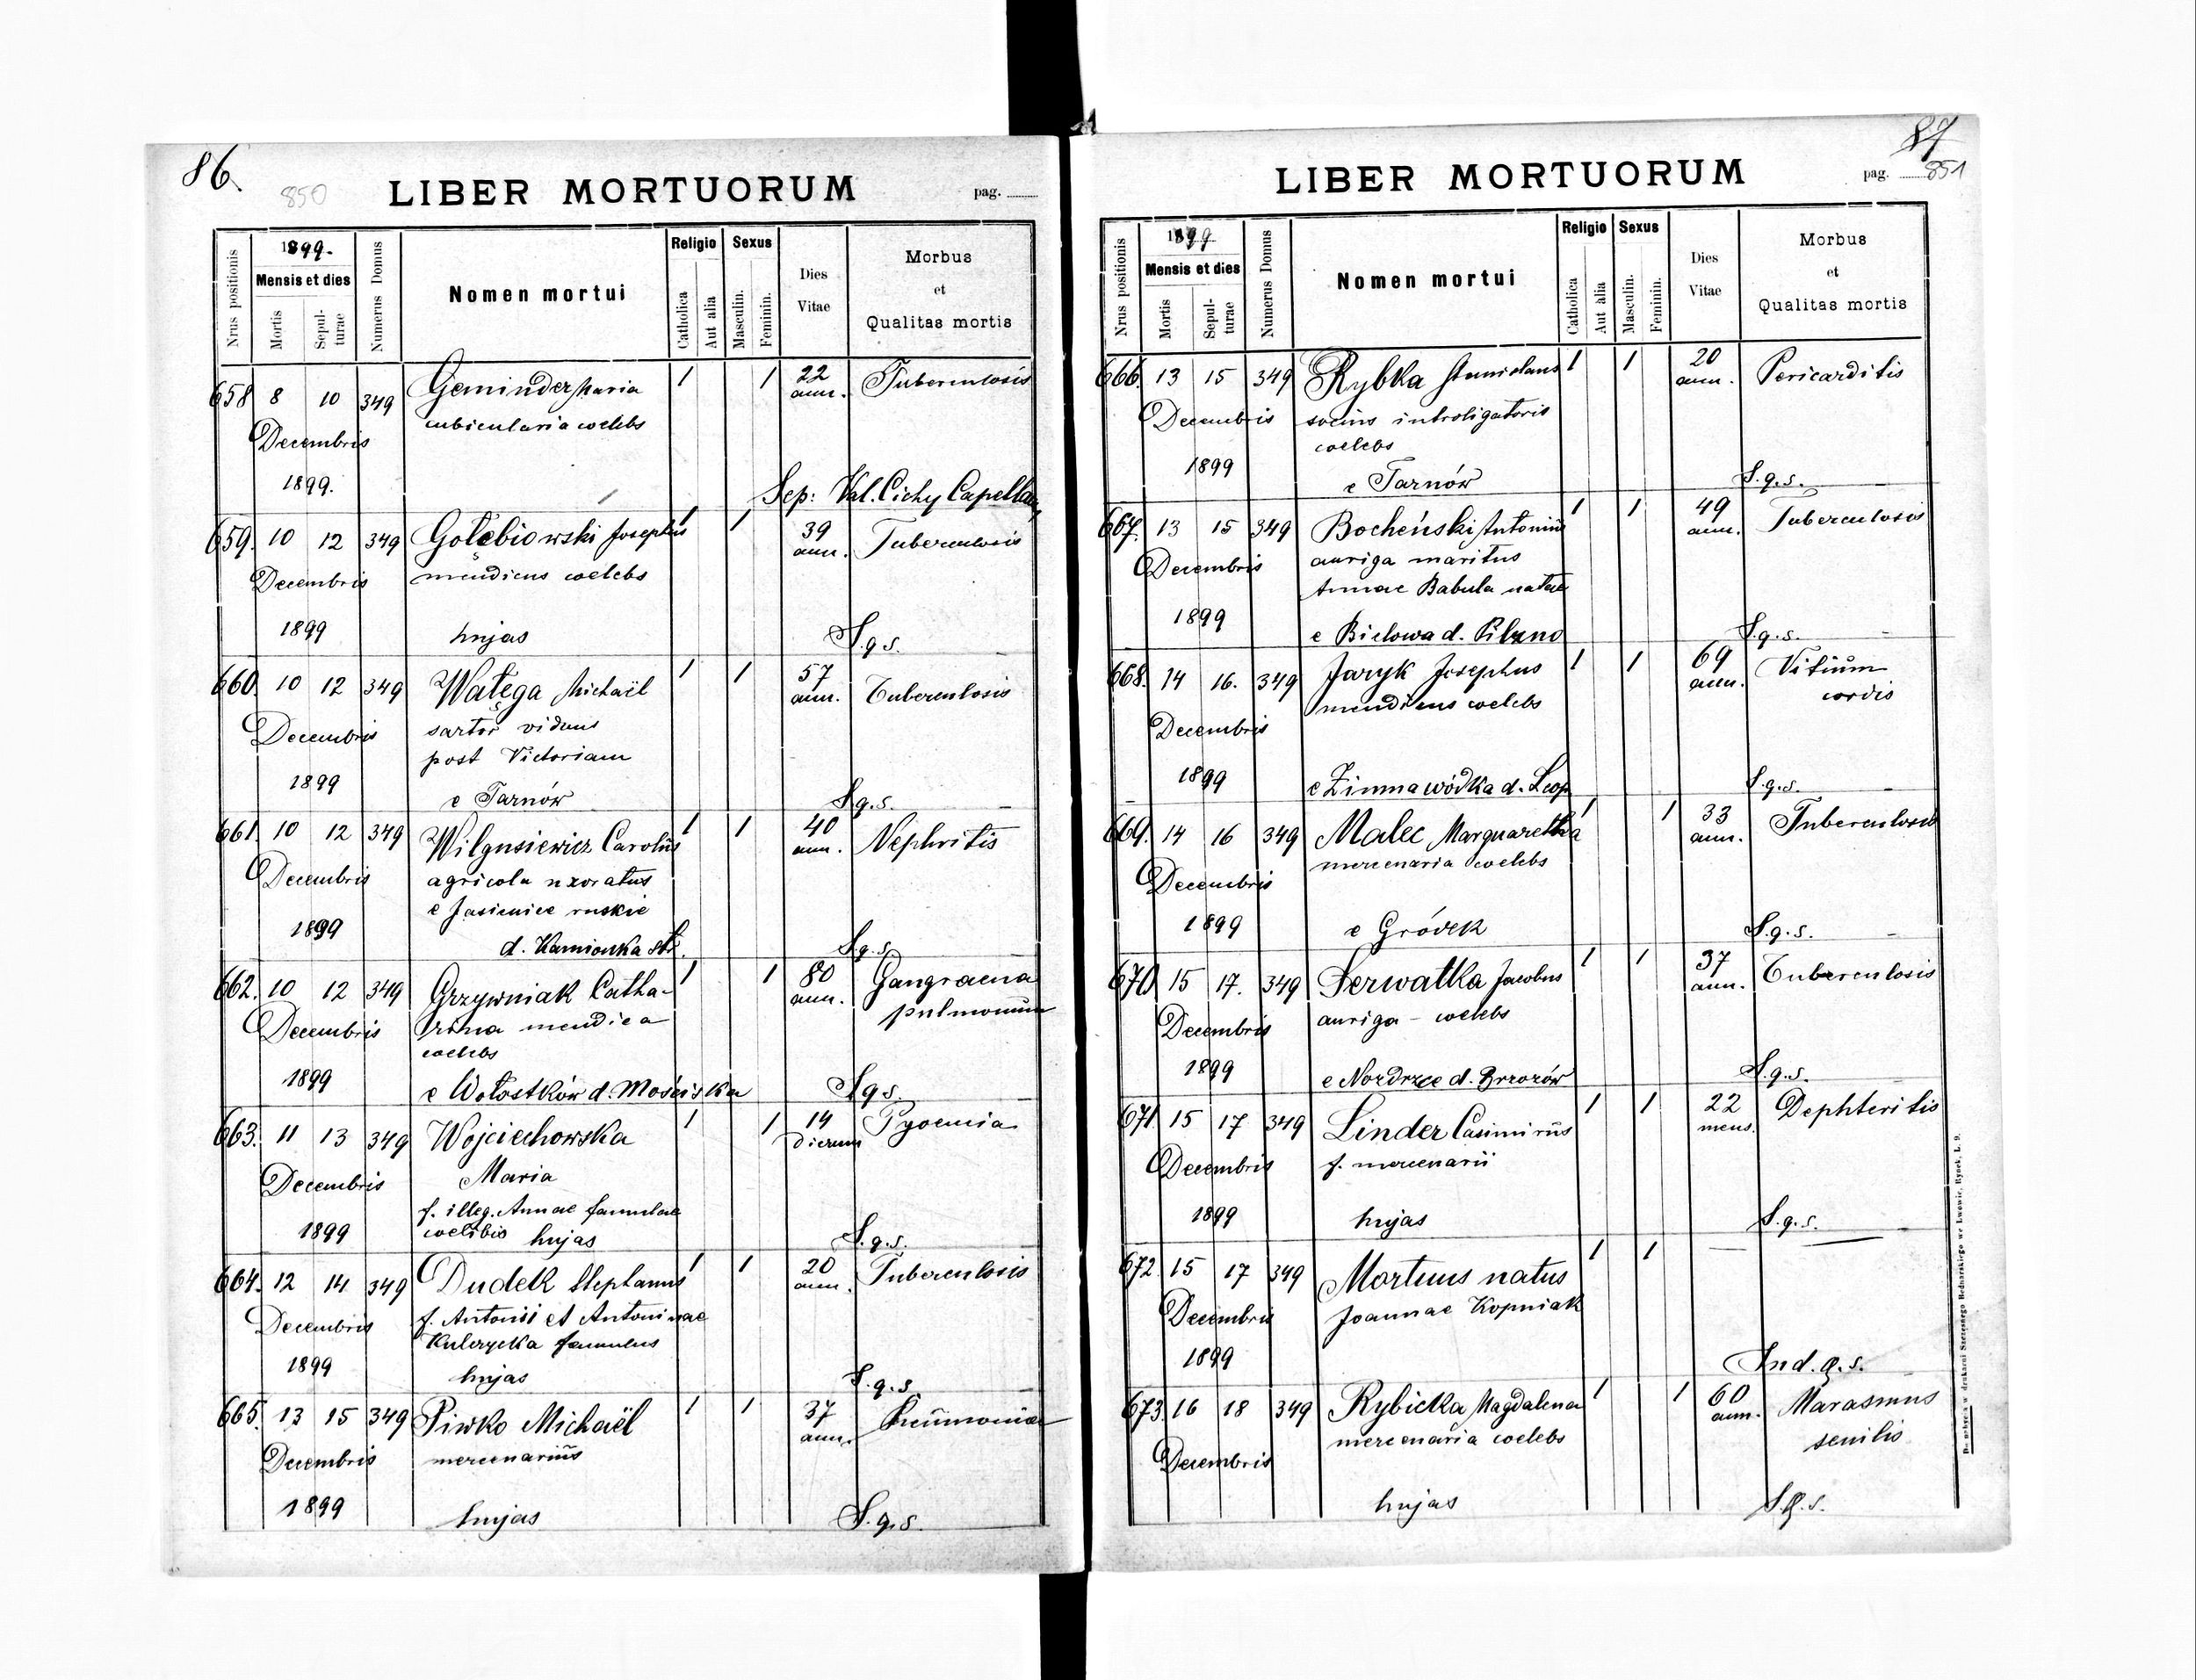 86.
850
LIBER MORTUORUM
pag.
Nrus positionis
1899.
Mensis et dies
Mortis
Sepul-
turae
Numerus Domus
Nomen mortui
Religio
Catholica
Aut alia
Sexus
Masculin.
Feminin.
Dies
Vitae
Morbus
et
Qualitas mortis
658 8 10 349 Geminder Maria 1 1 22 Tuberculosis
ann.
cubicularia coelebs
Decembris
1899.
Sep: Val. Cichy Capellan
659. 10 12 349 Gołębiowski Josephus 1 1 39 Tuberculosis
ann.
Decembris mendicus coelebs
1899 hujas S.q.s.
660. 10 12 349 Wałęga Michaël 1 1 57 Tuberculosis
ann.
Decembris sartor viduus
post Victoriam
1899
e Tarnów S.q.s.
661. 10 12 349 Wilgusiewicz Carolus 1 1 40 Nephritis
ann.
Decembris agricola uxoratus
e Jasienice ruskie
1899
d. Kamionka str. S.q.s.
662. 10 12 349 Grzywniak Catha- 1 1 80 Gangraena
ann. pulmonum
Decembris rina mendica
coelebs
1899 e Wołostków d. Mościska S.q.s.
663. 11 13 349 Wojciechowska 1 1 14 Pyoemia
dierum
Decembris Maria
f. illeg. Annae famulae
1899 coelibis hujas S.q.s.
664. 12 14 349 Dudek Stephanus 1 1 20 Tuberculosis
ann.
Decembris f. Antonii et Antoninae
Kulczycka famulus
1899
hujas S.q.s.
665. 13 15 349 Piwko Michaël 1 1 37 Pneumonia
ann.
Decembris mercenarius
1899 hujas S.q.s.
87
LIBER MORTUORUM
pag. 851
Nrus positionis
1899
Mensis et dies
Mortis
Sepul-
turae
Numerus Domus
Nomen mortui
Religio
Catholica
Aut alia
Sexus
Masculin.
Feminin.
Dies
Vitae
Morbus
et
Qualitas mortis
666. 13 15 349 Rybka Stanislaus 1 1 20 Pericarditis
ann.
Decembris socius introligatoris
coelebs
1899
e Tarnów S.q.s.
667. 13 15 349 Bocheński Antonius 1 1 49 Tuberculosis
ann.
Decembris auriga maritus
Annae Babula natae
1899 e Bielowa d. Pilzno S.q.s.
668. 14 16. 349 Jaryk Josephus 1 1 69 Vitium
ann. cordis
mendicus coelebs
Decembris
1899 e Zimnawódka d. Leop S.q.s.
669. 14 16 349 Malec Marguaretha 1 1 33 Tuberculosis
ann.
Decembris mercenaria coelebs
1899 e Gródek S.q.s.
670 15 17. 349 Serwatka Jacobus 1 1 37 Tuberculosis
ann.
Decembris auriga - coelebs
1899 e Nozdrzec d. Brzozów S.q.s.
671. 15 17 349 Linder Casimirus 1 1 22 Dephteritis
mens.
Decembris f. mercenarii
1899 hujas S.q.s.
672. 15 17 349 Mortuus natus 1 1
Decembris Joannae Kopniak
1899
Ind. q.s.
673. 16 18 349 Rybicka Magdalena 1 1 60 Marasmus
ann. senilis
Decembris mercenaria coelebs
hujas S.q.s.
Do nabycia w drukarni Szczęsnego Bednarskiego we Lwowie, Rynek, L. 9.